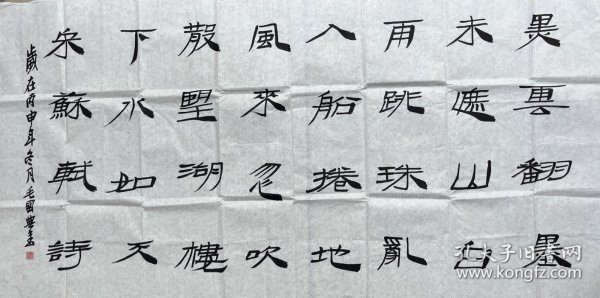 黑雲翻墨
未遮山白
雨跳珠亂
入船捲地
風來忽吹
散望湖樓
下水如天
宋蘇軾詩
歲在丙申年冬月毛國典書
孔夫子旧书网
www.kongfz.com